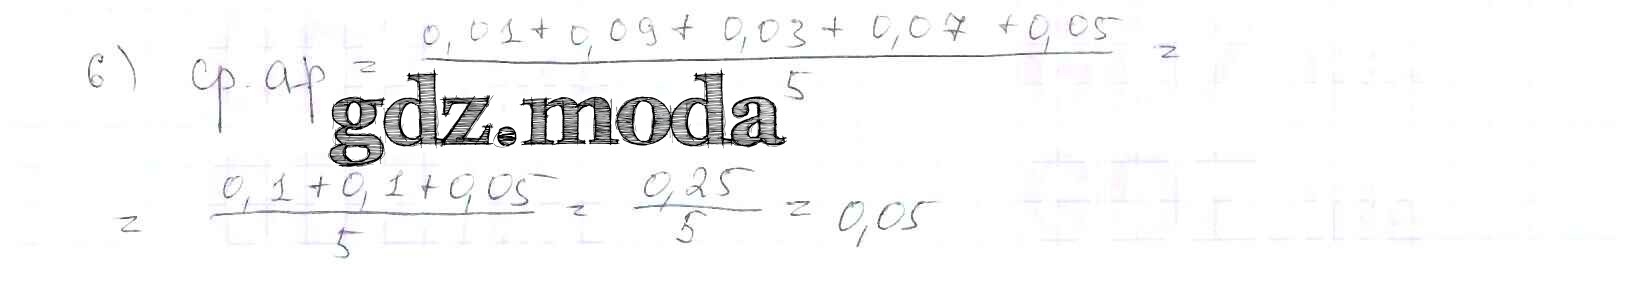 б) ср. ар = 0,01 + 0,09 + 0,03 + 0,07 + 0,05 / 5 =
gdz.moda
= 0,1 + 0,1 + 0,05 / 5 = 0,25 / 5 = 0,05